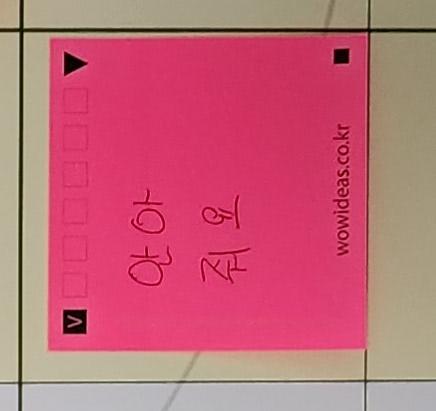 V
안아
줘요
wowideas.co.kr